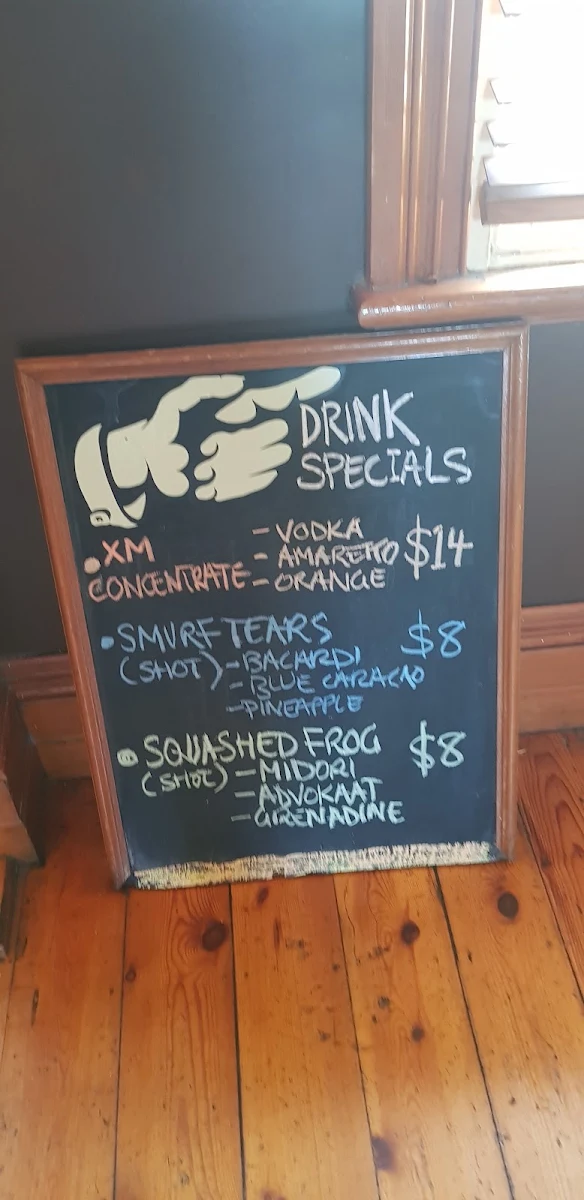 DRINK
SPECIALS
• XM CONCENTRATE
- VODKA
- AMARETTO
- ORANGE
$14
• SMURF TEARS $8
(SHOT) - BACARDI
- BLUE CARACAO
- PINEAPPLE
• SQUASHED FROG $8
(SHOT) - MIDORI
- ADVOKAAT
- GRENADINE